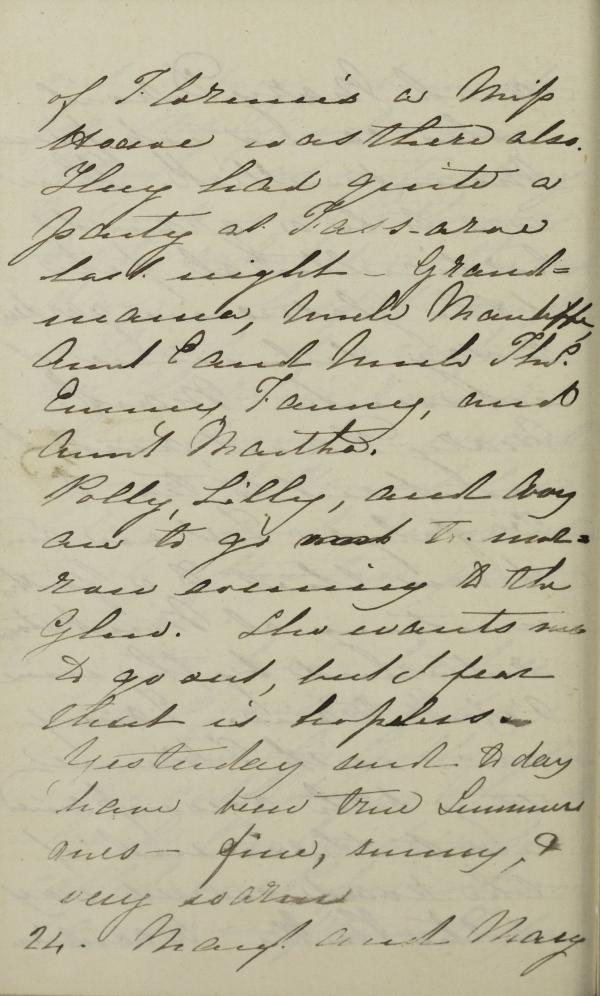 of Florence's a Miss
Howe was there also.
They had quite a
party at Fassaroe
last night - Grand=
mama, Uncle
Aunt C and Uncle Thos.
Emmy, Fanny, and
Aunt Martha.
Polly, Lilly, and
are to go to-mor=
row evening to the
Glen. She wants me
to go out, but I fear
that is hopeless.
Yesterday and to day
have been true Summer
ones - fine, sunny, &
very warm
24. Margt. and Mary